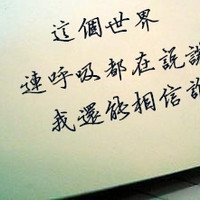 這個世界
連呼吸都在說
我還能相信